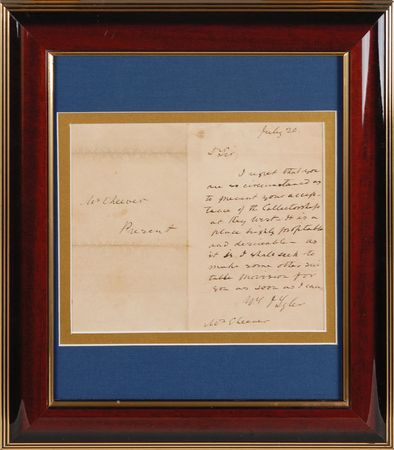 Mr Cheever
Present
July 20.
D Sir
I regret that you
are so circumstanced as
to prevent your accep-
tance of the Collectorship
at Key West. It is a
place highly profitable
and desireable - as
it is, I shall seek to
make some other sui
table provision for
you as soon as I can
J Tyler
Mr Cheever